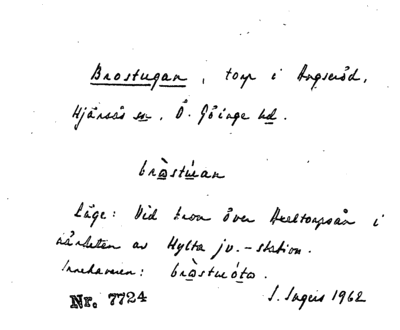 Brostugan, torp i Angseröd,
Hjärsås sn, Ö. Göinge hd.
bràstúan
Läge: Vid bron över Axeltorpsån i
närheten av Hylta jv.-station.
Innehavaren:
Nr. 7724 S. Ingers 1962